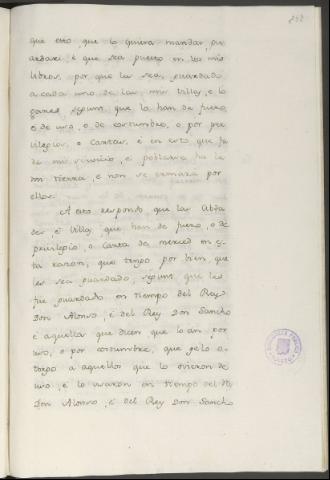 252
que esto, que lo quiera mandar, gu
ardar; é que sea puesto en los mis
libros, por que les sea guardado
a cada uno de las mis Villas, e lo
gares, segunt, que lo han de fuero,
o de uso, o de costumbre, o por pre
vilegios, o Cartas, é en esto que fa
ré mio servicio, é poblarse ha la
mi tierra, e non se ermara por
ellos.
A esto respondo, que las Cibda
des, é Villas, que han de fuero, o de
privilegio, o Carta de merced en es
ta razon, que tengo por bien que
les sea guardado, segunt, que les
fue guardado en tiempo del Rey
Don Alonso, é del Rey Don Sancho
é aquellas que dicen que lo an por
uso, o por costumbre, que gelo o-
torgo a aquellos que lo ovieron de
uso, é lo usaron en tiempo del R.
Don Alonso, é del Rey Don Sancho